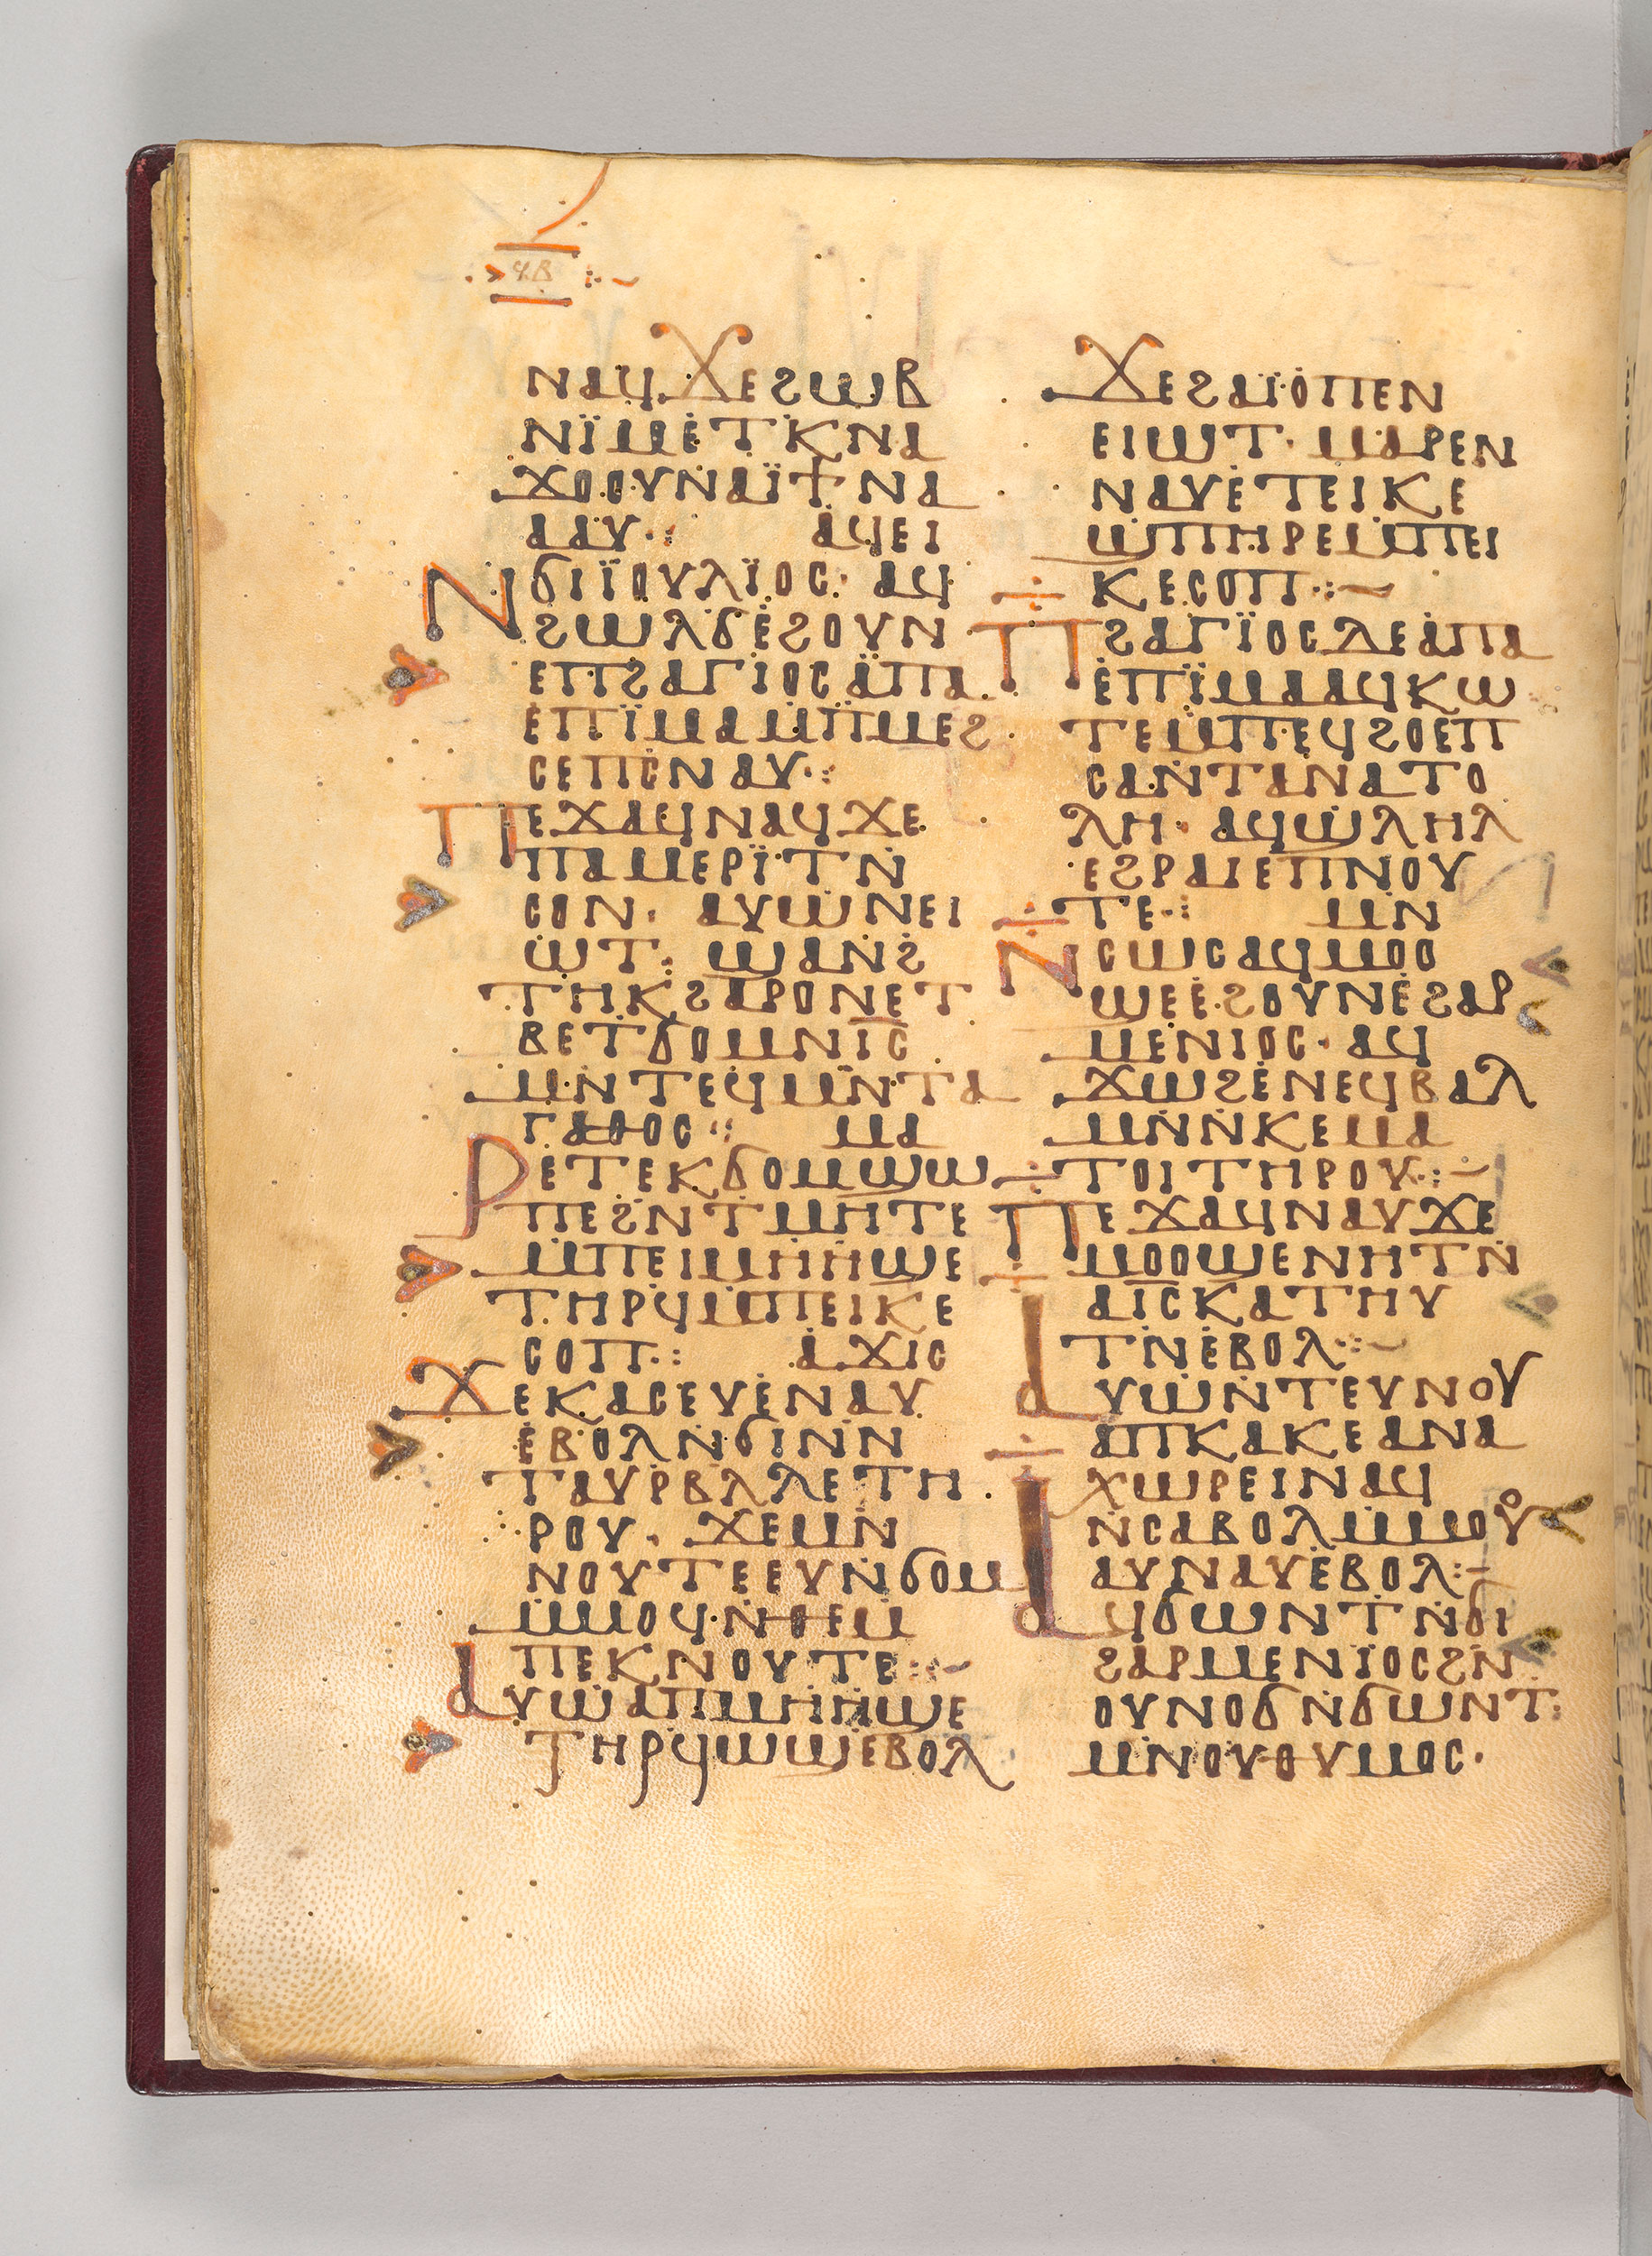 ϥⲃ
ⲛⲁϥϫⲉϩⲱⲃ
ⲛⲓ̈ⲙⲉⲧⲕⲛⲁ
ϫⲟⲟⲩⲛⲁⲓ̈ϯⲛⲁ
ⲁⲁⲩ·: ⲁϥⲉⲓ
ⲛϭⲓⲓ̈ⲟⲩⲗⲓ̈ⲟⲥ· ⲁϥ
ϩⲱⲗϭⲉϩⲟⲩⲛ
ⲉⲡϩⲁⲅⲓⲟⲥⲁⲡⲁ
ⲉⲡⲓ̈ⲙⲁⲙⲡⲙⲉϩ
ⲥⲉⲡⲥⲛⲁⲩ·:
ⲡⲉϫⲁϥⲛⲁϥϫⲉ
ⲡⲁⲙⲉⲣⲓ̈ⲧⲛ
ⲥⲟⲛ· ⲁⲩⲱⲛⲉⲓ
ⲱⲧ· ϣⲁⲛϩ
ⲧⲏⲕϩⲁⲣⲟⲛⲉⲧ
ⲃⲉⲧϭⲟⲙⲛⲓ̅ⲥ̅
ⲙⲛⲧⲉϥⲙⲛⲧⲁ
ⲅⲁⲑⲟⲥ·: ⲙⲁ
ⲣⲉⲧⲉⲕϭⲟⲙϣⲱ
ⲡⲉϩⲛⲧⲙⲏⲧⲉ
ⲙⲡⲉⲓⲙⲏⲏϣⲉ
ⲧⲏⲣϥⲙⲡⲉⲓⲕⲉ
ⲥⲟⲡ·: ⲁϫⲓⲥ
ϫⲉⲕⲁⲥⲉⲩⲉⲛⲁⲩ
ⲉⲃⲟⲗⲛϭⲓⲛⲛ
ⲧⲁⲩⲣⲃⲗⲗⲉⲧⲏ
ⲣⲟⲩ· ϫⲉⲙⲛ
ⲛⲟⲩⲧⲉⲉⲩⲛϭⲟⲙ
ⲙⲙⲟϥ·ⲛⲑⲉⲙ
ⲡⲉⲕⲛⲟⲩⲧⲉ·:~
ⲁⲩⲱⲁⲡⲙⲏⲏϣⲉ
ⲧⲏⲣϥⲱϣⲉⲃⲟⲗ
ϫⲉϩⲁⲓ̈ⲟⲡⲉⲛ
ⲉⲓⲱⲧ· ⲙⲁⲣⲉⲛ
ⲛⲁⲩⲉⲧⲉⲓⲕⲉ
ϣⲡⲏⲣⲉⲙⲡⲉⲓ
ⲕⲉⲥⲟⲡ·:~
ⲡϩⲁⲅⲓ̈ⲟⲥⲇⲉⲁⲡⲁ
ⲉⲡⲓ̈ⲙⲁⲁϥⲕⲱ
ⲧⲉⲙⲡⲉϥϩⲟⲉⲡ
ⲥⲁⲛⲧⲁⲛⲁⲧⲟ
ⲗⲏ· ⲁϥϣⲗⲏⲗ
ⲉϩⲣⲁⲓⲉⲡⲛⲟⲩ
ⲧⲉ·: ⲙⲛ
ⲛⲥⲱⲥⲁϥⲙⲟⲟ
ϣⲉⲉϩⲟⲩⲛⲉϩⲁⲣ
ⲙⲉⲛⲓⲟⲥ· ⲁϥ
ϫⲱϩⲉⲛⲉϥⲃⲁⲗ
ⲙⲛⲛⲕⲉⲙⲁ
ⲧⲟⲓⲧⲏⲣⲟⲩ·:~
ⲡⲉϫⲁϥⲛⲁⲩϫⲉ
ⲙⲟⲟϣⲉⲛⲏⲧⲛ
ⲁⲓ̅ⲥ̅ⲕⲁⲧⲏⲩ
ⲧⲛⲉⲃⲟⲗ·:~
ⲁⲩⲱⲛⲧⲉⲩⲛⲟⲩ
ⲁⲡⲕⲁⲕⲉⲁⲛⲁ
ⲭⲱⲣⲉⲓⲛⲁϥ
ⲛⲥⲁⲃⲟⲗⲙⲙⲟⲟⲩ
ⲁⲩⲛⲁⲩⲉⲃⲟⲗ:~
ⲁϥϭⲱⲛⲧⲛϭⲓ
ϩⲁⲣⲙⲉⲛⲓⲟⲥϩⲛ
ⲟⲩⲛⲟϭⲛϭⲱⲛⲧ:
ⲙⲛⲟⲩⲑⲩⲙⲟⲥ·